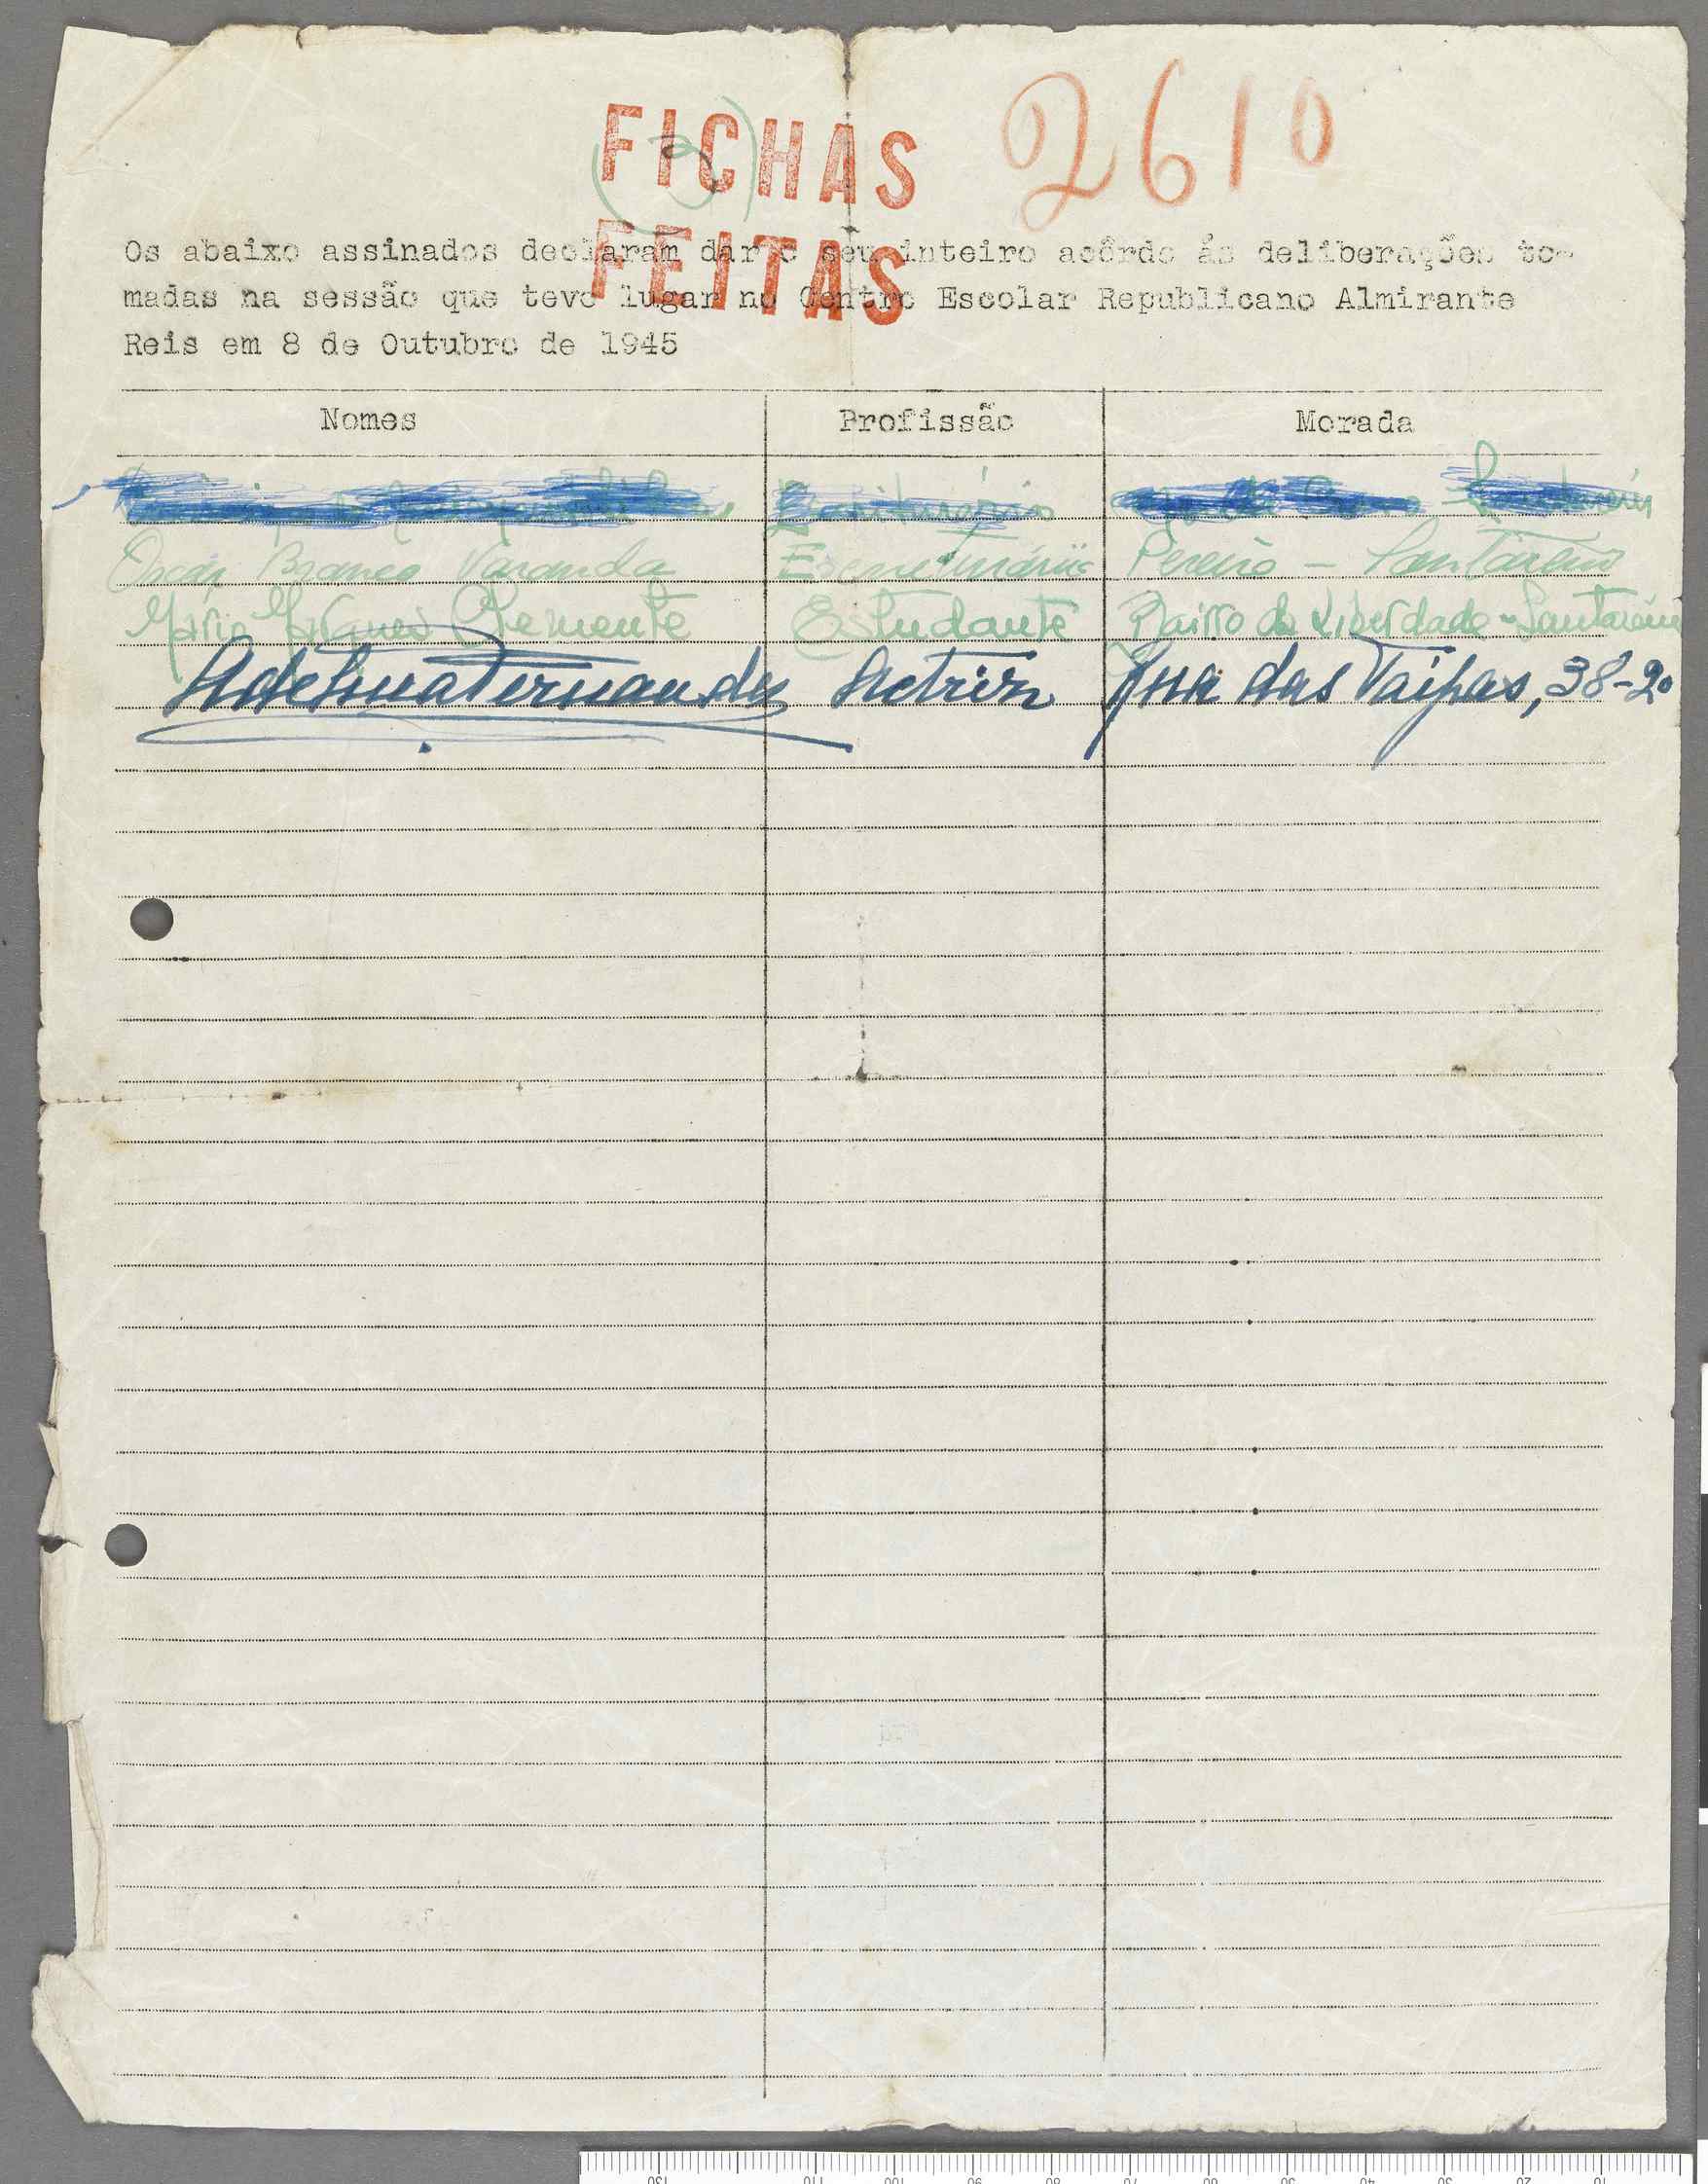 FICHAS
2610
(3)
FEITAS
Os abaixo assinados declaram dar o seu inteiro acôrdo ás deliberações to-
madas na sessão que teve lugar no Centro Escolar Republicano Almirante
Reis em 8 de Outubro de 1945
Nomes Profissão Morada
Branco Varanda Pereiro - Santarem
Mário Clemente Estudante Bairro da Liberdade - Santarem
Adelina Fernandes Actriz Rua das Taipas, 38-2º